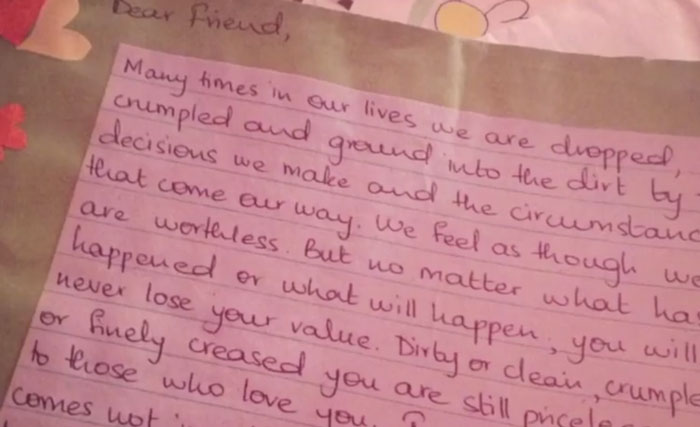 Dear friend,
Many times in our lives we are dropped,
crumpled and ground into the dirt by
decisions we make and the circumstanc
that come our way. We feel as though we
are worthless. But no matter what has
happened or what will happen, you will
never lose your value. Dirty or clean, crumple
or finely creased you are still pricele
to those who love you.
comes not